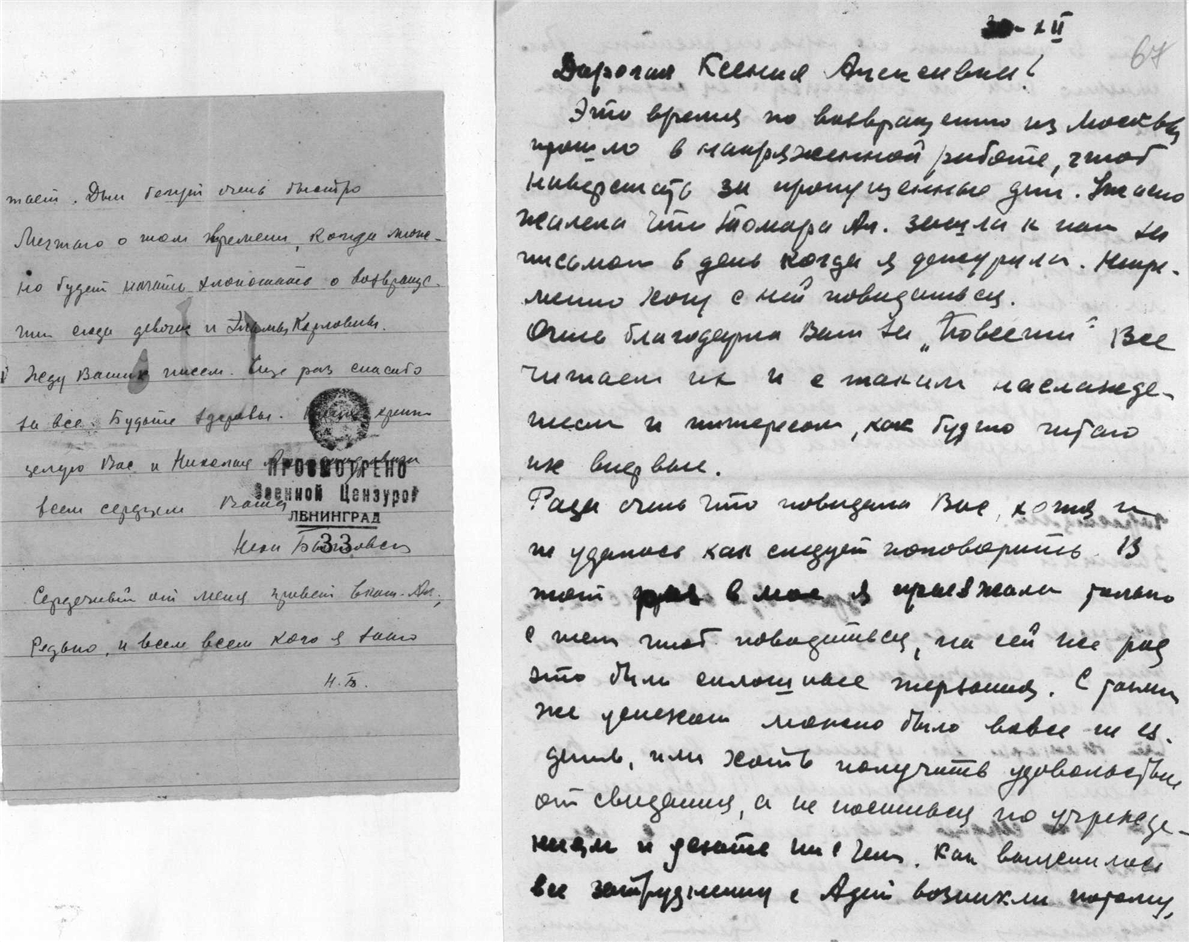 тает. Дни бегут очень быстро
Мечтаю о том времени, когда мож-
но будет начать хлопотать о возвраще-
нии сюда девочек и Эммы Карловны.
Жду Ваших писем. Еще раз спасибо
за все. Будьте здоровы.
целую Вас и Николая
всем сердцем Ваша
ПРОСМОТРЕНО
Военной Цензурой
ЛЕНИНГРАД
33
Сердечный от меня привет Ан.,
и всем всем кого я знаю
Н.Б.
XII
67
Дорогая Ксения Алексеевна!
Это время по возвращению из Москвы
прошло в напряженной работе, чтоб
наверстать за пропущенные дни. Ужасно
жалела что Томара Ал. зашла к нам за
письмом в день когда я дежурила. Непре-
менно хочу с ней повидаться.
Очень благодарна Вам за „Повести" Все
читаем их и с таким наслажде-
нием и интересом, как будто читаю
их впервые.
Рада очень что повидала Вас, хотя и
не удалось как следует поговорить. В
тот раз в мае я приезжала только
с тем чтоб повидаться, на сей же раз
это были сплошные терзания. С таким
же успехом можно было вовсе не ез-
дить, или хоть получить удовольствие
от свидания, а не носиться по учрежде-
ниям и уехать ни с чем. Как выяснилось
все затруднения с Адей возникли потому,